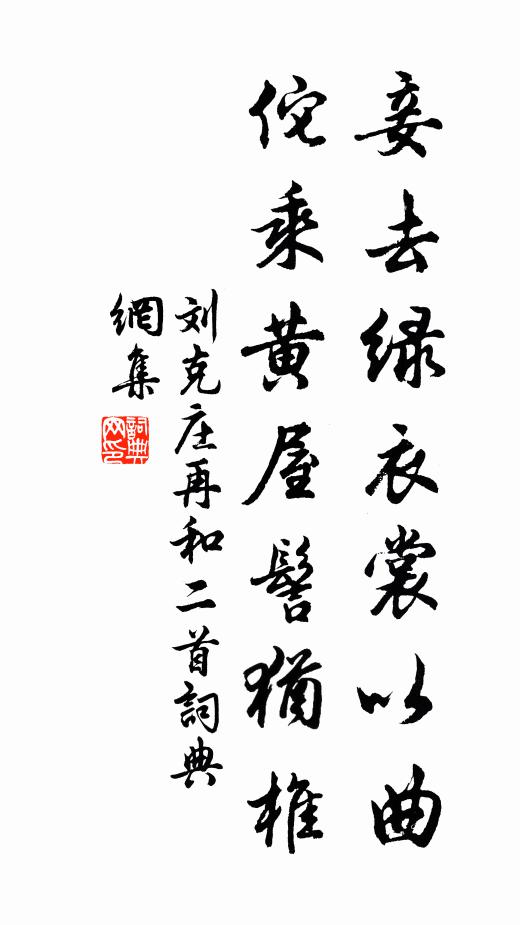 妾去绿衣裳以曲
佗乘黄屋髻犹椎
刘克庄再和二首詞典
網集
詞典
网印